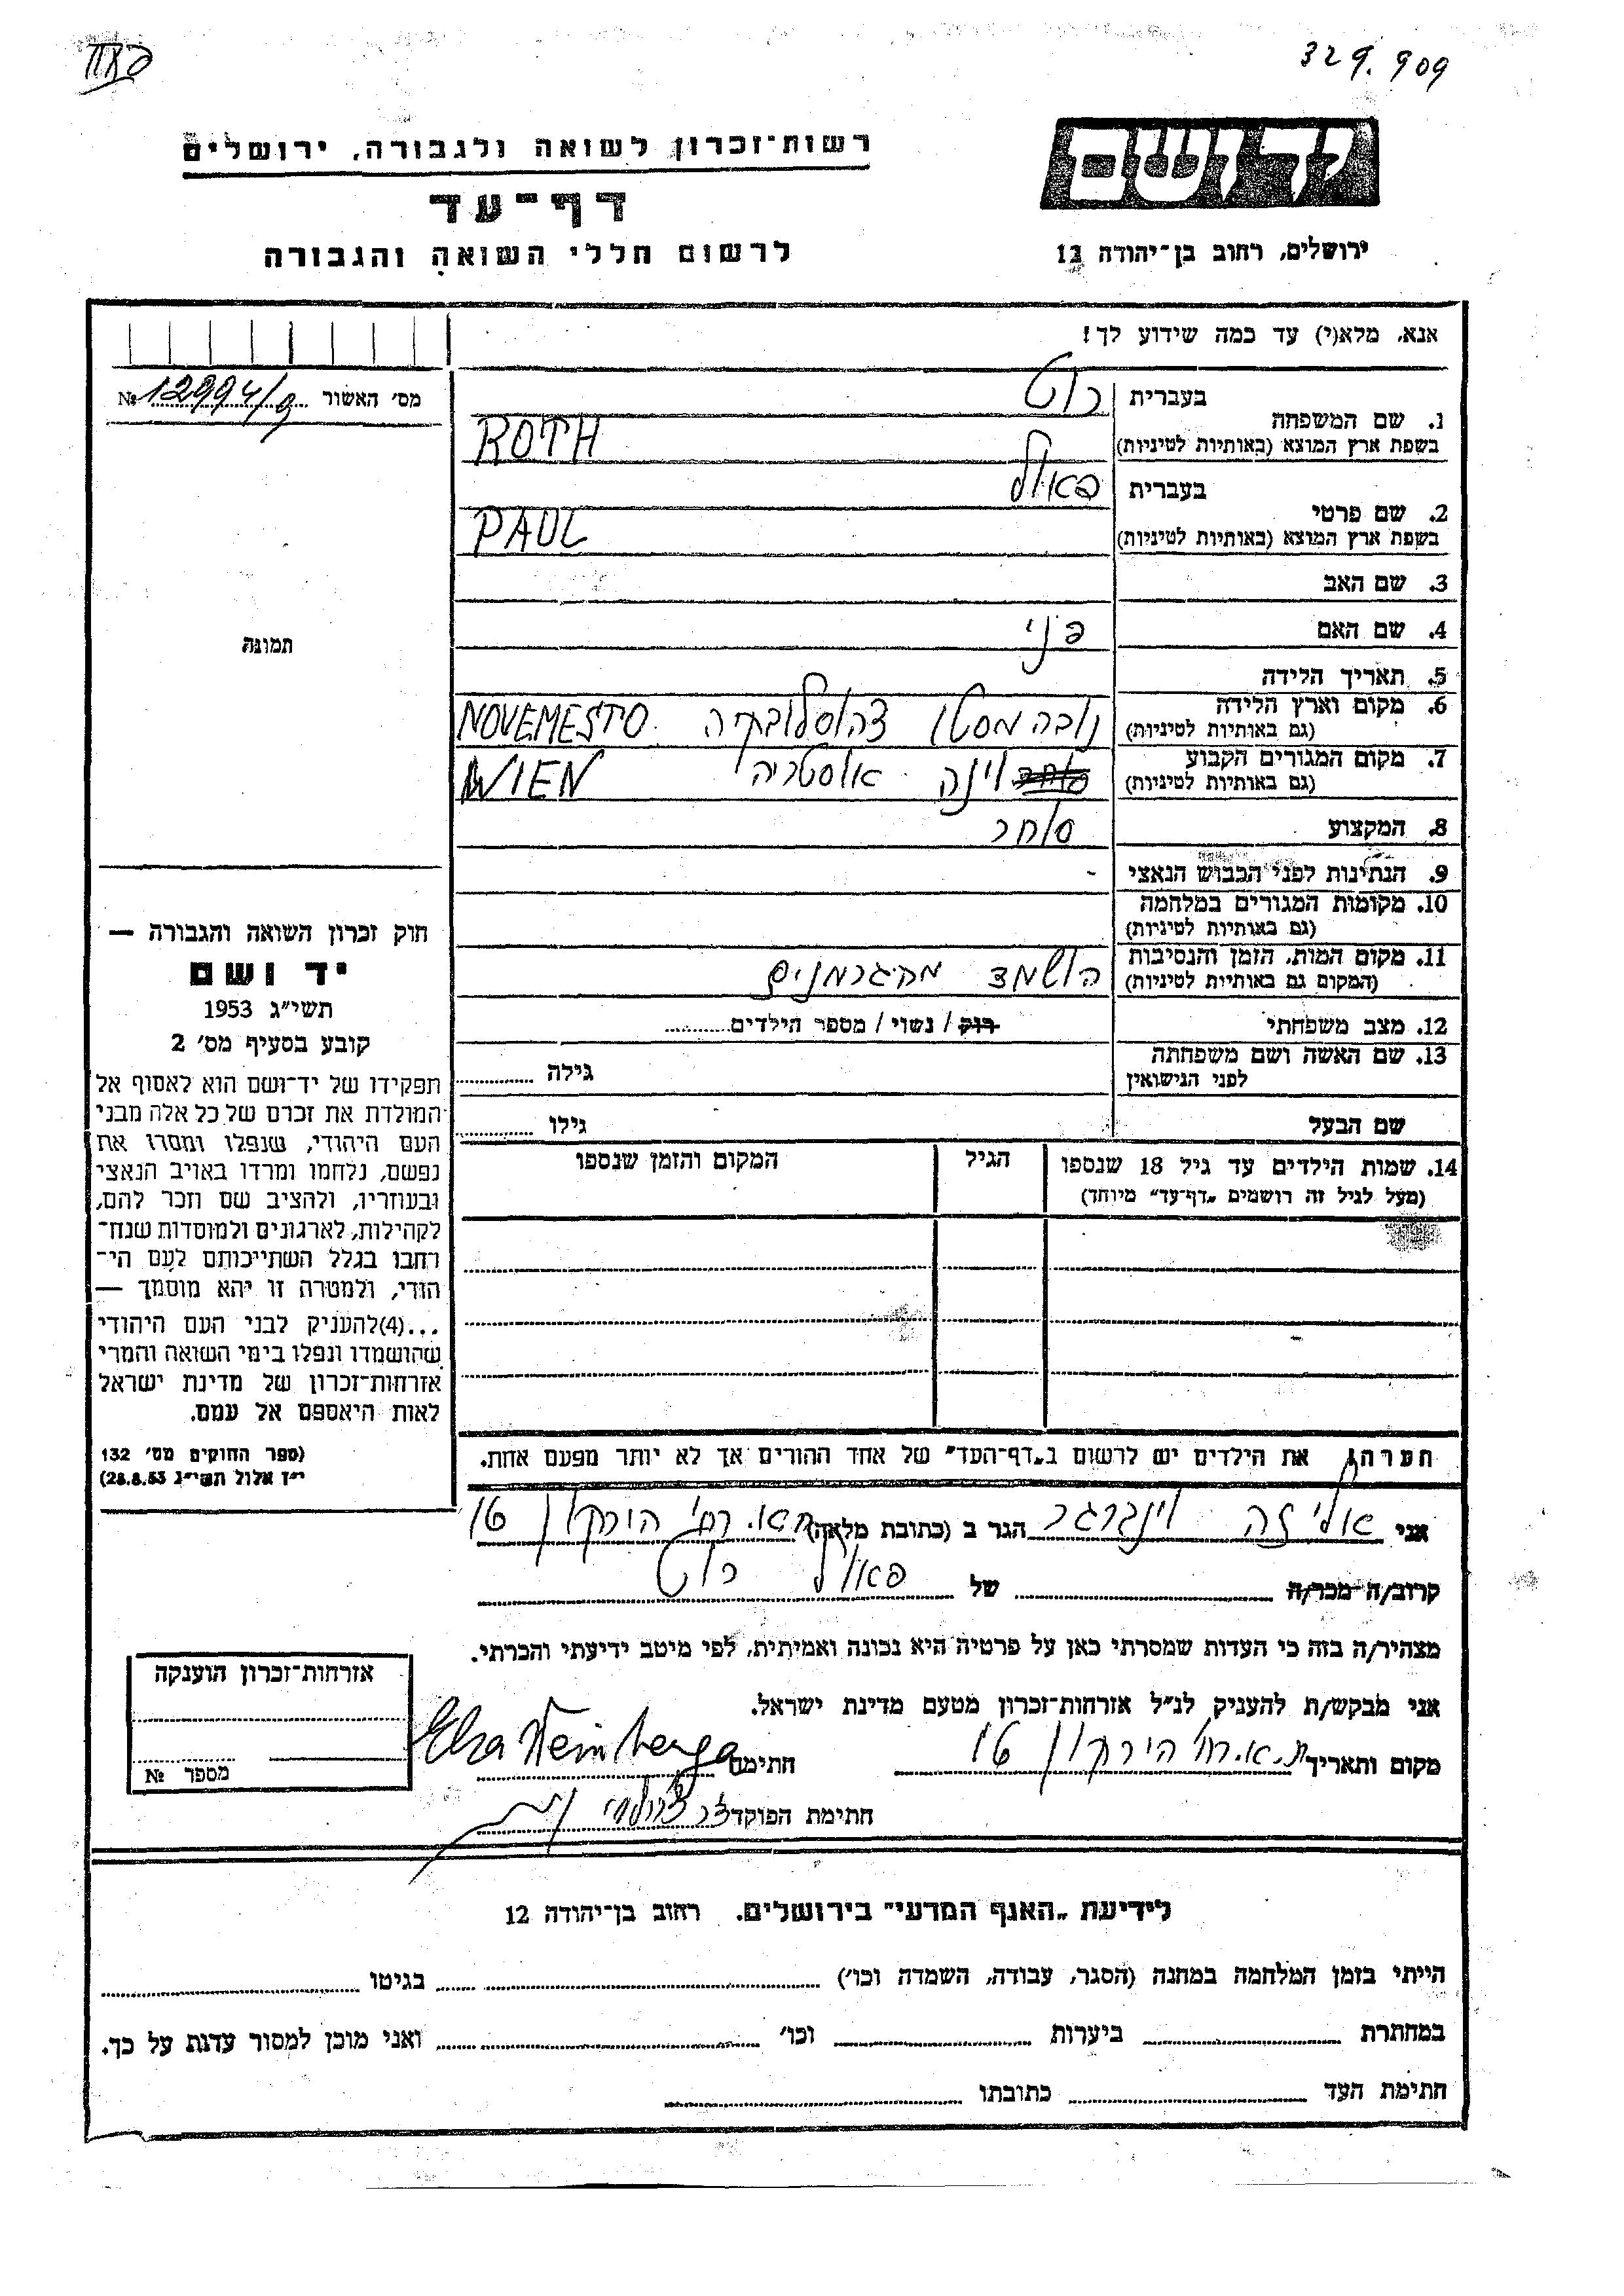 329.909
רשות־זכרון לשואה ולגבורה, ירושלים
דף־עד
לרשום חללי השואה והגבורה
יד ושם
ירושלים, רחוב בן־יהודה 12
אנא, מלא(י) עד כמה שידוע לך!
מס׳ האשור № 12994/9
תמונה
1. שם המשפחה
בעברית רוט
בשפת ארץ המוצא (באותיות לטיניות) ROTH
2. שם פרטי
בעברית פאול
בשפת ארץ המוצא (באותיות לטיניות) PAUL
3. שם האב
4. שם האם פני
5. תאריך הלידה
6. מקום וארץ הלידה
(גם באותיות לטיניות) נובה מסטו צ'כוסלובקיה NOVEMESTO
7. מקום המגורים הקבוע
(גם באותיות לטיניות) וינה אוסטריה WIEN
8. המקצוע סוחר
9. הנתינות לפני הכבוש הנאצי -
10. מקומות המגורים במלחמה
(גם באותיות לטיניות)
11. מקום המות, הזמן והנסיבות
(המקום גם באותיות לטיניות) הושמד מהגרמנים
12. מצב משפחתי רוק / נשוי / מספר הילדים
13. שם האשה ושם משפחתה
לפני הנישואין גילה
שם הבעל גילו
14. שמות הילדים עד גיל 18 שנספו
(מעל לגיל זה רושמים „דף־עד” מיוחד)
הגיל
המקום והזמן שנספו
חוק זכרון השואה והגבורה —
יד ושם
תשי״ג 1953
קובע בסעיף מס׳ 2
תפקידו של יד־ושם הוא לאסוף אל
המולדת את זכרם של כל אלה מבני
העם היהודי, שנפלו ומסרו את
נפשם, נלחמו ומרדו באויב הנאצי
ובעוזריו, ולהציב שם וזכר להם,
לקהילות, לארגונים ולמוסדות שנח־
רחבו בגלל השתייכותם לעם הי־
הודי, ולמטרה זו יהא מוסמך —
...(4)להעניק לבני העם היהודי
שהושמדו ונפלו בימי השואה והמרי
אזרחות־זכרון של מדינת ישראל
לאות היאספם אל עמם.
(ספר החוקים מס׳ 132
י״ז אלול תשי״ג 28.8.53)
הערה: את הילדים יש לרשום ב„דף־העד” של אחד ההורים אך לא יותר מפעם אחת.
אני אליזה וינברגר הגר ב (כתובת מלאה) ת.א. רח' הירקון 16
קרוב/ה מכר/ה של פאול רוט
מצהיר/ה בזה כי העדות שמסרתי כאן על פרטיה היא נכונה ואמיתית, לפי מיטב ידיעתי והכרתי.
אני מבקש/ת להעניק לנ״ל אזרחות־זכרון מטעם מדינת ישראל.
מקום ותאריך ת.א. רח' הירקון 16 חתימה
חתימת הפוקד
אזרחות־זכרון הוענקה
מספר №
לידיעת „האגף המדעי” בירושלים. רחוב בן־יהודה 12
הייתי בזמן המלחמה במחנה (הסגר, עבודה, השמדה וכו׳) בגיטו
במחתרת ביערות וכו׳ ואני מוכן למסור עדות על כך.
חתימת העד כתובתו